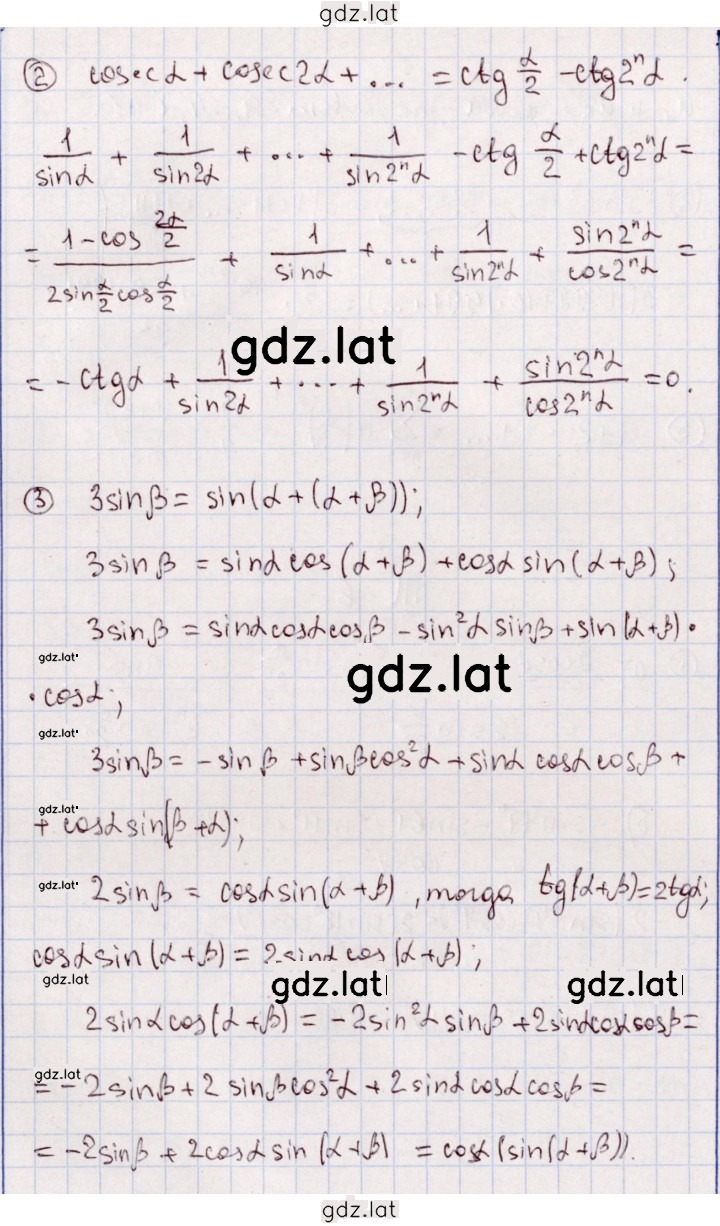 gdz.lat
② cosec α + cosec 2α + ... = ctg α/2 - ctg 2ⁿα.
1/sin α + 1/sin 2α + ... + 1/sin 2ⁿα - ctg α/2 + ctg 2ⁿα =
= (1 - cos 2α/2)/(2 sin α/2 cos α/2) + 1/sin α + ... + 1/sin 2ⁿα + sin 2ⁿα/cos 2ⁿα =
gdz.lat
= - ctg α + 1/sin 2α + ... + 1/sin 2ⁿα + sin 2ⁿα/cos 2ⁿα = 0.
③ 3 sin β = sin(α + (α + β));
3 sin β = sin α cos (α + β) + cos α sin (α + β);
3 sin β = sin α cos α cos β - sin²α sin β + sin (α + β) ·
gdz.lat
gdz.lat
· cos α;
gdz.lat
3 sin β = - sin β + sin β cos²α + sin α cos α cos β +
gdz.lat
+ cos α sin(β + α);
gdz.lat
2 sin β = cos α sin (α + β), тогда tg(α + β) = 2 tg α;
cos α sin (α + β) = 2 sin α cos (α + β);
gdz.lat
gdz.lat
gdz.lat
2 sin α cos (α + β) = - 2 sin²α sin β + 2 sin α cos α cos β =
gdz.lat
= - 2 sin β + 2 sin β cos²α + 2 sin α cos α cos β =
= - 2 sin β + 2 cos α sin (α + β) = cos α (sin (α + β)).
gdz.lat